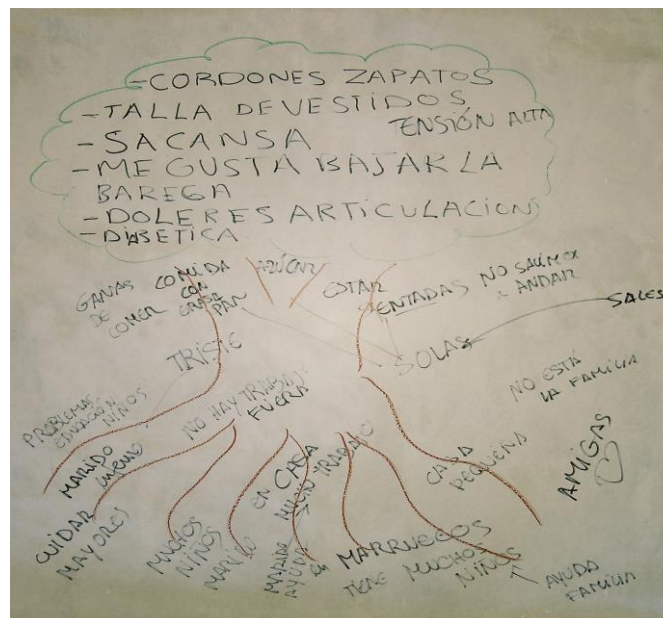 -CORDONES ZAPATOS
-TALLA DE VESTIDOS
TENSIÓN ALTA
-SACANSA
-ME GUSTA BAJAR LA
BAREGA
-DOLERES ARTICULACION
-DIABETICA
GANAS
DE
COMER
COMIDA
CON
GRASA
PAN
AZÚCAR
ESTAR
SENTADAS
NO SALIMOS
A ANDAR
SALES
TRISTE
SOLAS
PROBLEMAS
EDUCACIÓN
NIÑOS
NO HAY TRABAJO
FUERA
NO ESTÁ
LA FAMILIA
MARIDO
CUIDAR
MAYORES
MUCHOS
NIÑOS
MARIDO
EN CASA
MUCHO TRABAJO
MARIDO
AYUDA
EN MARRUECOS
TIENE MUCHOS
NIÑOS
CASA
PEQUEÑA
AMIGAS
AYUDA
FAMILIA